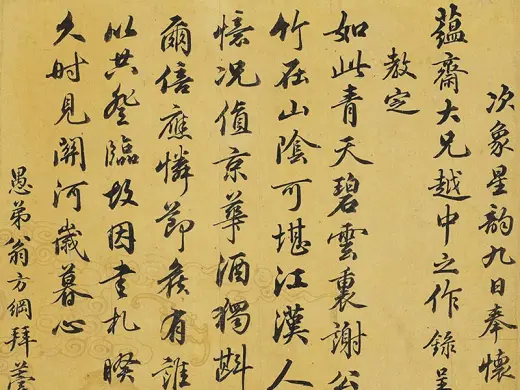 次象星韵九日奉懷
蘊齋大兄越中之作錄呈
教定
如此青天碧雲裏謝公
竹在山陰可堪江漢人
憶況值京華酒獨斟
爾倍應憐節候有誰
以共登臨故因書札暌
久時見關河歲暮心
愚弟翁方綱拜藁